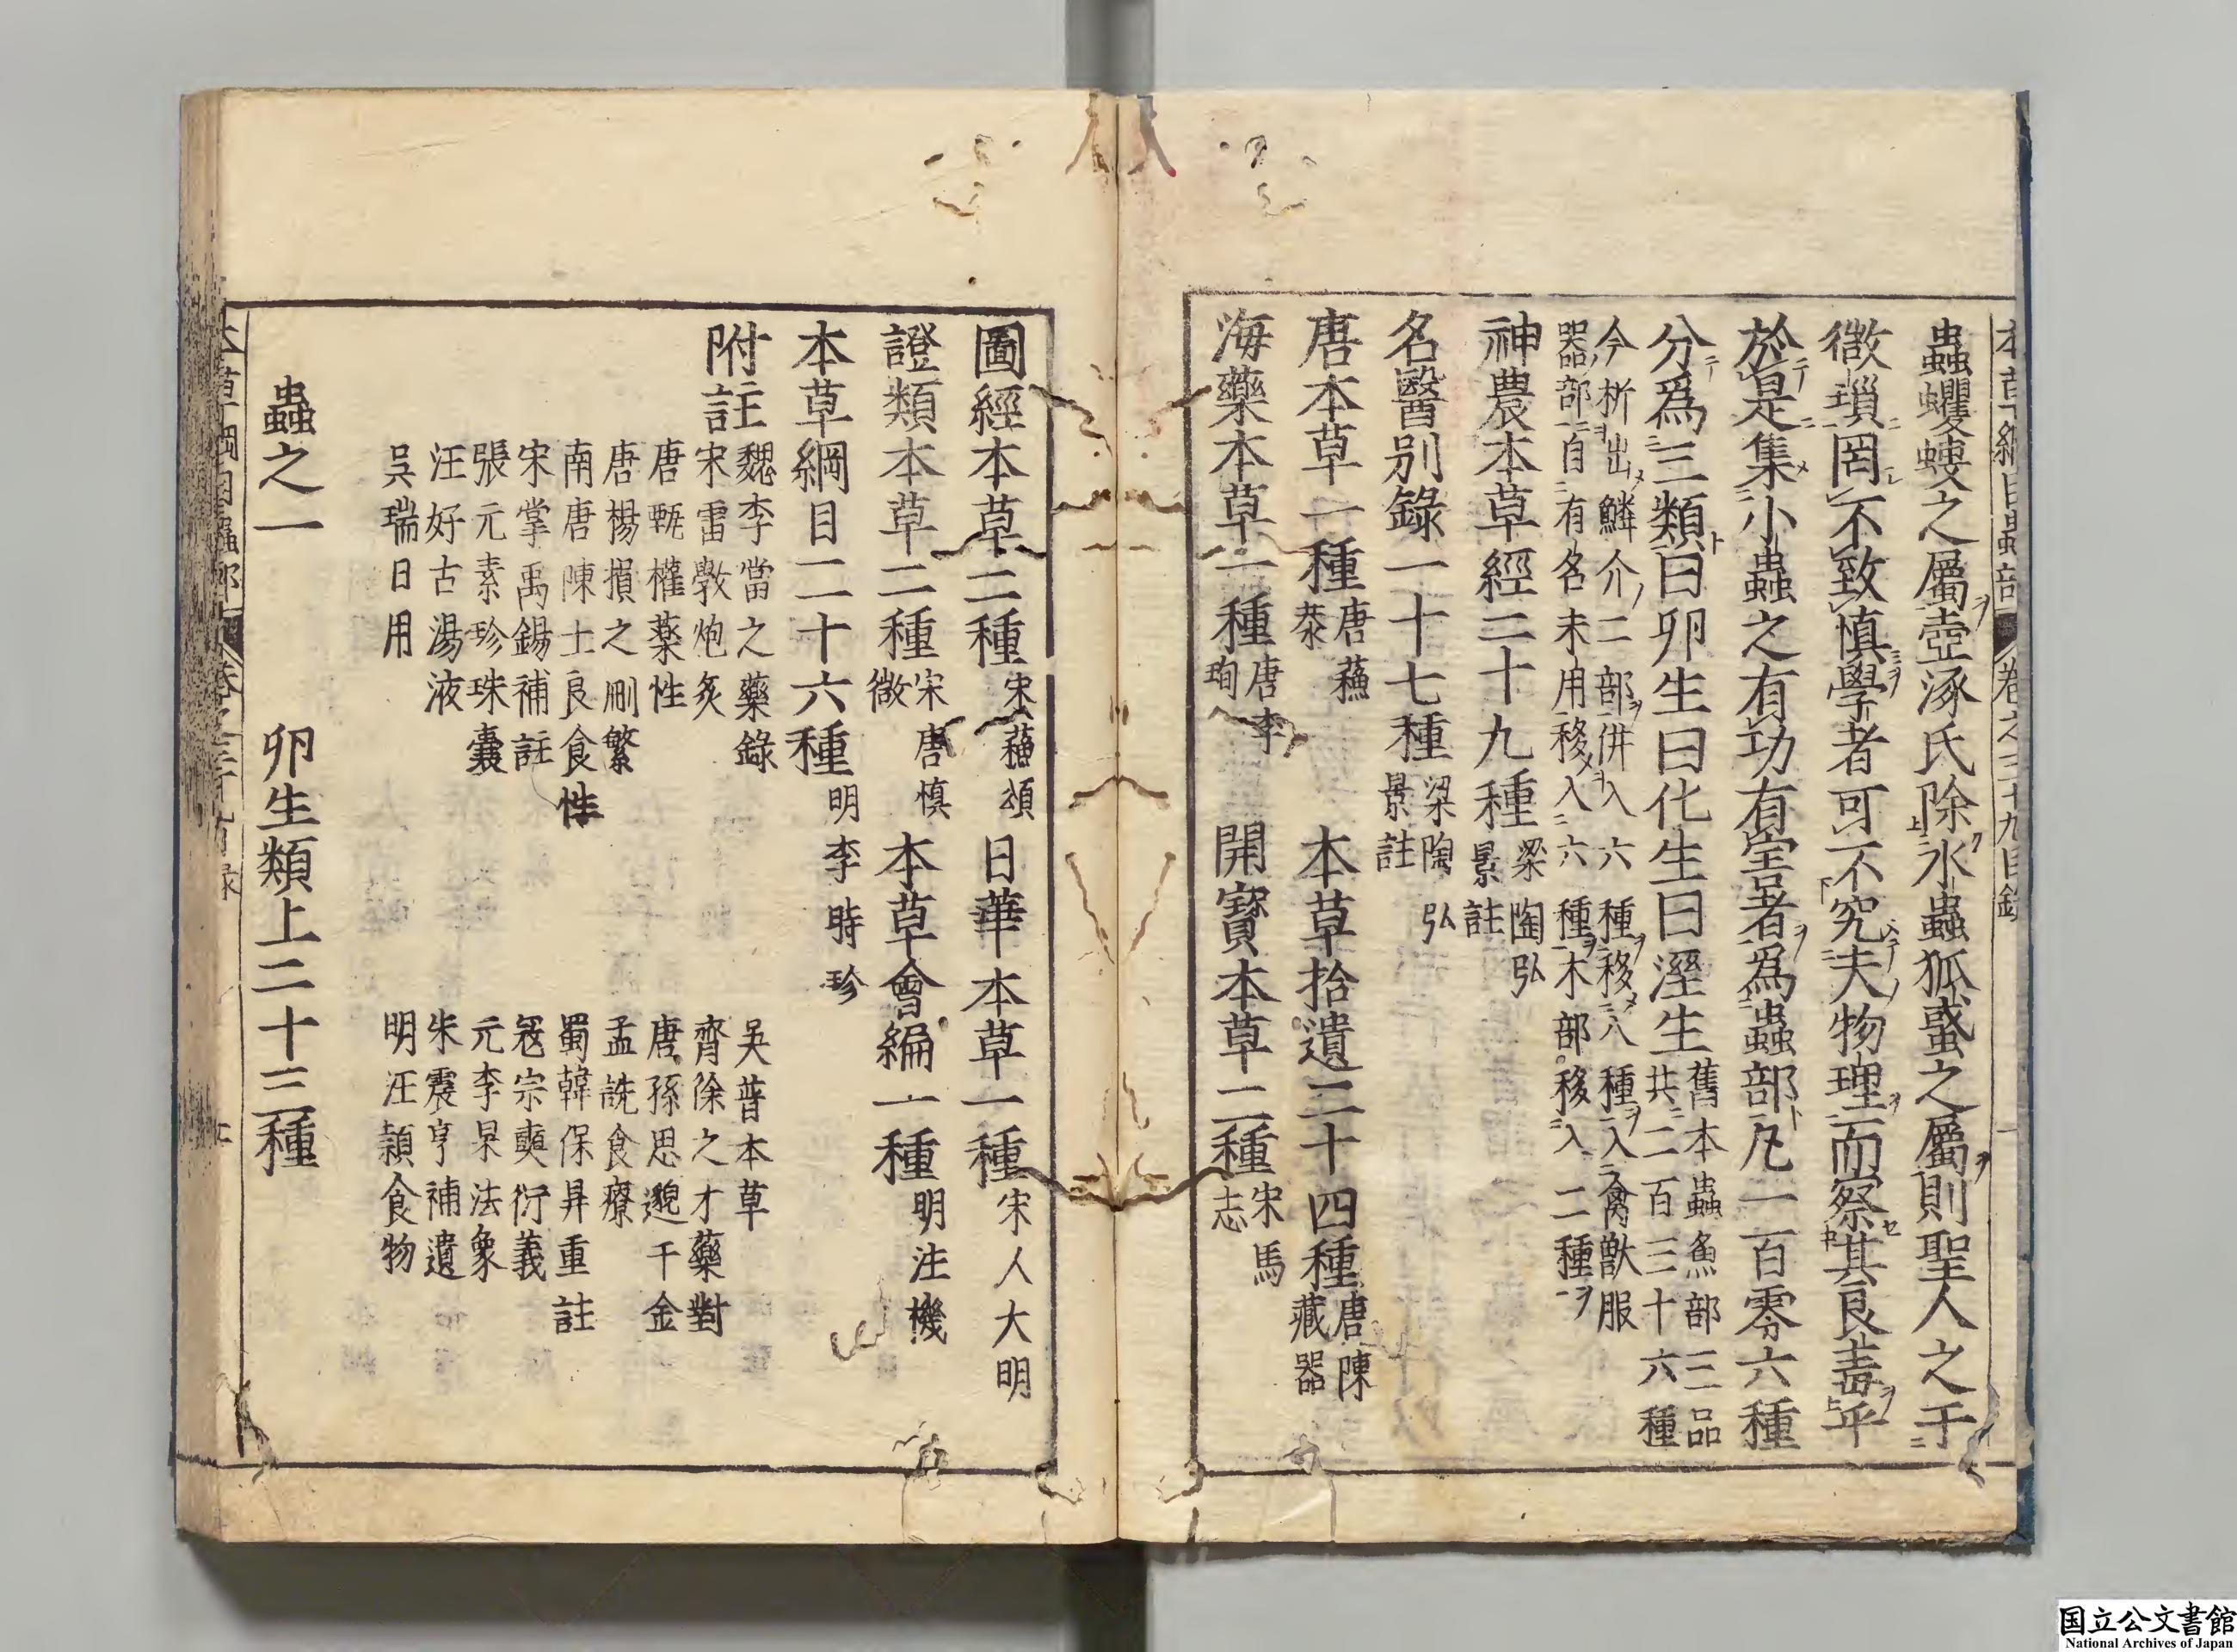 蟲蠼螋之屬壺涿氏除水蟲狐蜮之屬則聖人之于
微瑣罔不致慎學者可不究夫物理而察其良毒乎
於是集小蟲之有功有害者為蟲部凡一百零六種
分為三類曰卵生曰化生曰溼生
舊本蟲魚部三品
共二百三十六種
今析出鱗介二部併入六種移八種入禽獸服
器部自有名未用移入六種木部移入二種
神農本草經二十九種 梁陶弘
景註
名醫別錄一十七種 梁陶弘
景註
唐本草一種 唐蘓
恭
本草拾遺二十四種 唐陳
藏器
海藥本草一種 唐李
珣
開寶本草二種 宋馬
志
圖經本草二種 宋蘓頌
日華本草一種 宋人大明
證類本草二種 宋唐慎
微
本草會編一種 明汪機
本草綱目二十六種 明李時珍
附註
魏李當之藥錄
吳普本草
宋雷斅炮炙
齊徐之才藥對
唐甄權薬性
唐孫思邈千金
唐楊損之刪繁
孟詵食療
南唐陳士良食性
蜀韓保昇重註
宋掌禹錫補註
宼宗奭衍義
張元素珍珠囊
元李杲法象
汪好古湯液
朱震亨補遺
吳瑞日用
明汪頴食物
蟲之一 卵生類上二十三種
国立公文書館
National Archives of Japan